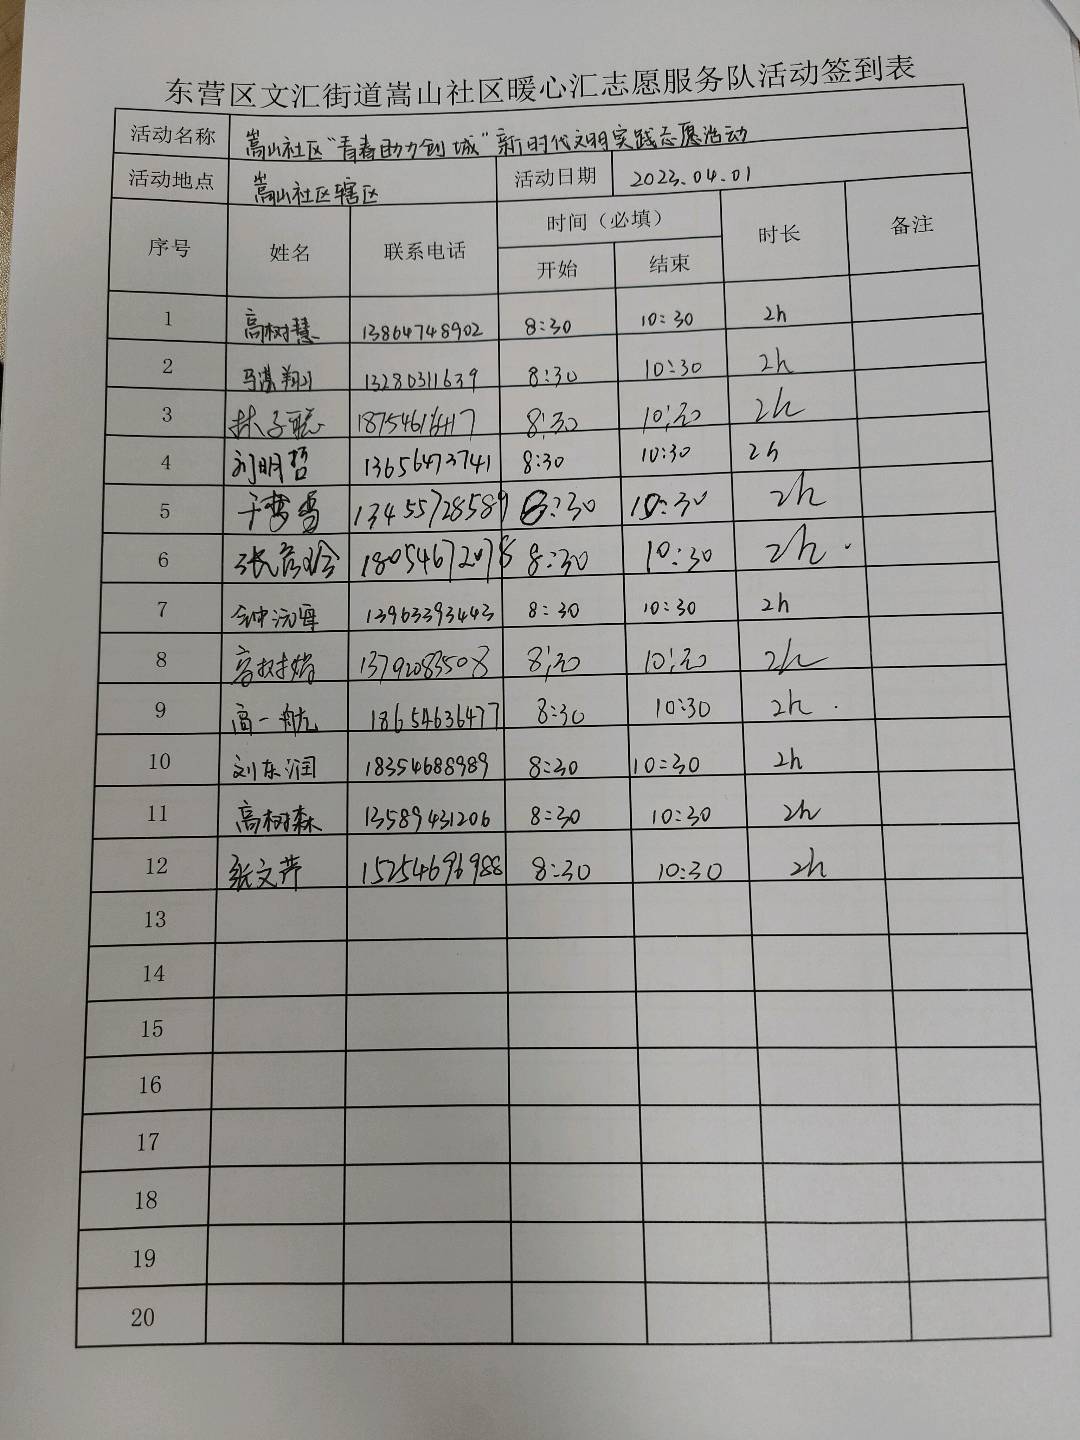 东营区文汇街道嵩山社区暖心汇志愿服务队活动签到表
活动名称 嵩山社区“青春助力创城”新时代文明实践志愿活动
活动地点 嵩山社区辖区 活动日期 2023.04.01
序号 姓名 联系电话 时间（必填） 时长 备注
开始 结束
1 高树慧 13864748902 8:30 10:30 2h
2 13280311639 8:30 10:30 2h
3 林子聪 8:30 10:30 2h
4 刘明哲 13656473741 8:30 10:30 2h
5 13455728589 8:30 10:30 2h
6 18054672078 8:30 10:30 2h
7 13963393443 8:30 10:30 2h
8 高树娟 13792083508 8:30 10:30 2h
9 高一航 18654636477 8:30 10:30 2h
10 刘东润 18354688989 8:30 10:30 2h
11 高树森 13589431206 8:30 10:30 2h
12 张文芹 15254696988 8:30 10:30 2h
13
14
15
16
17
18
19
20